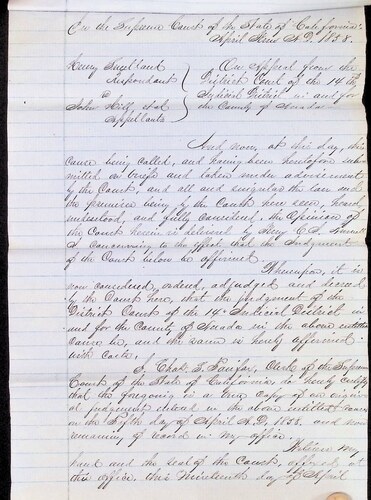 In the Supreme Court of the State of California
April Term A.D. 1858.
Henry
Respondent
vs
John Hill, et al
Appellants
On Appeal from the
District Court of the 14th
Judicial District in and for
the County of Nevada
And now, at this day, this
cause being called, and having been heretofore sub-
mitted on briefs and taken under advisement
by the Court, and all and singular the law and
the premises being by the Court here seen, heard,
understood, and fully considered, the Opinion of
the Court herein is delivered by
J. concurring to the effect that the Judgment
of the Court below be affirmed.
Whereupon, it is
now considered, ordered, adjudged and decreed
by the Court here, that the judgment of the
District Court of the 14th Judicial District in
and for the County of Nevada in the above entitled
cause be, and the same is hereby affirmed
with costs.
I, Chas. S. Fairfax, Clerk of the Supreme
Court of the State of California, do hereby certify
that the foregoing is a true copy of an original
judgement entered in the above entitled cause
on the Fifth day of April A.D. 1858. and now
remaining of record in my office.
Witness my
hand and the seal of the Court, affixed at
this office, this Nineteenth day of April